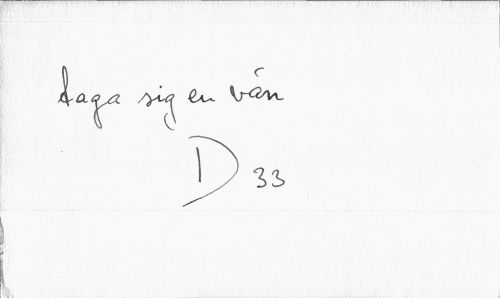 taga sig en vän
D 33